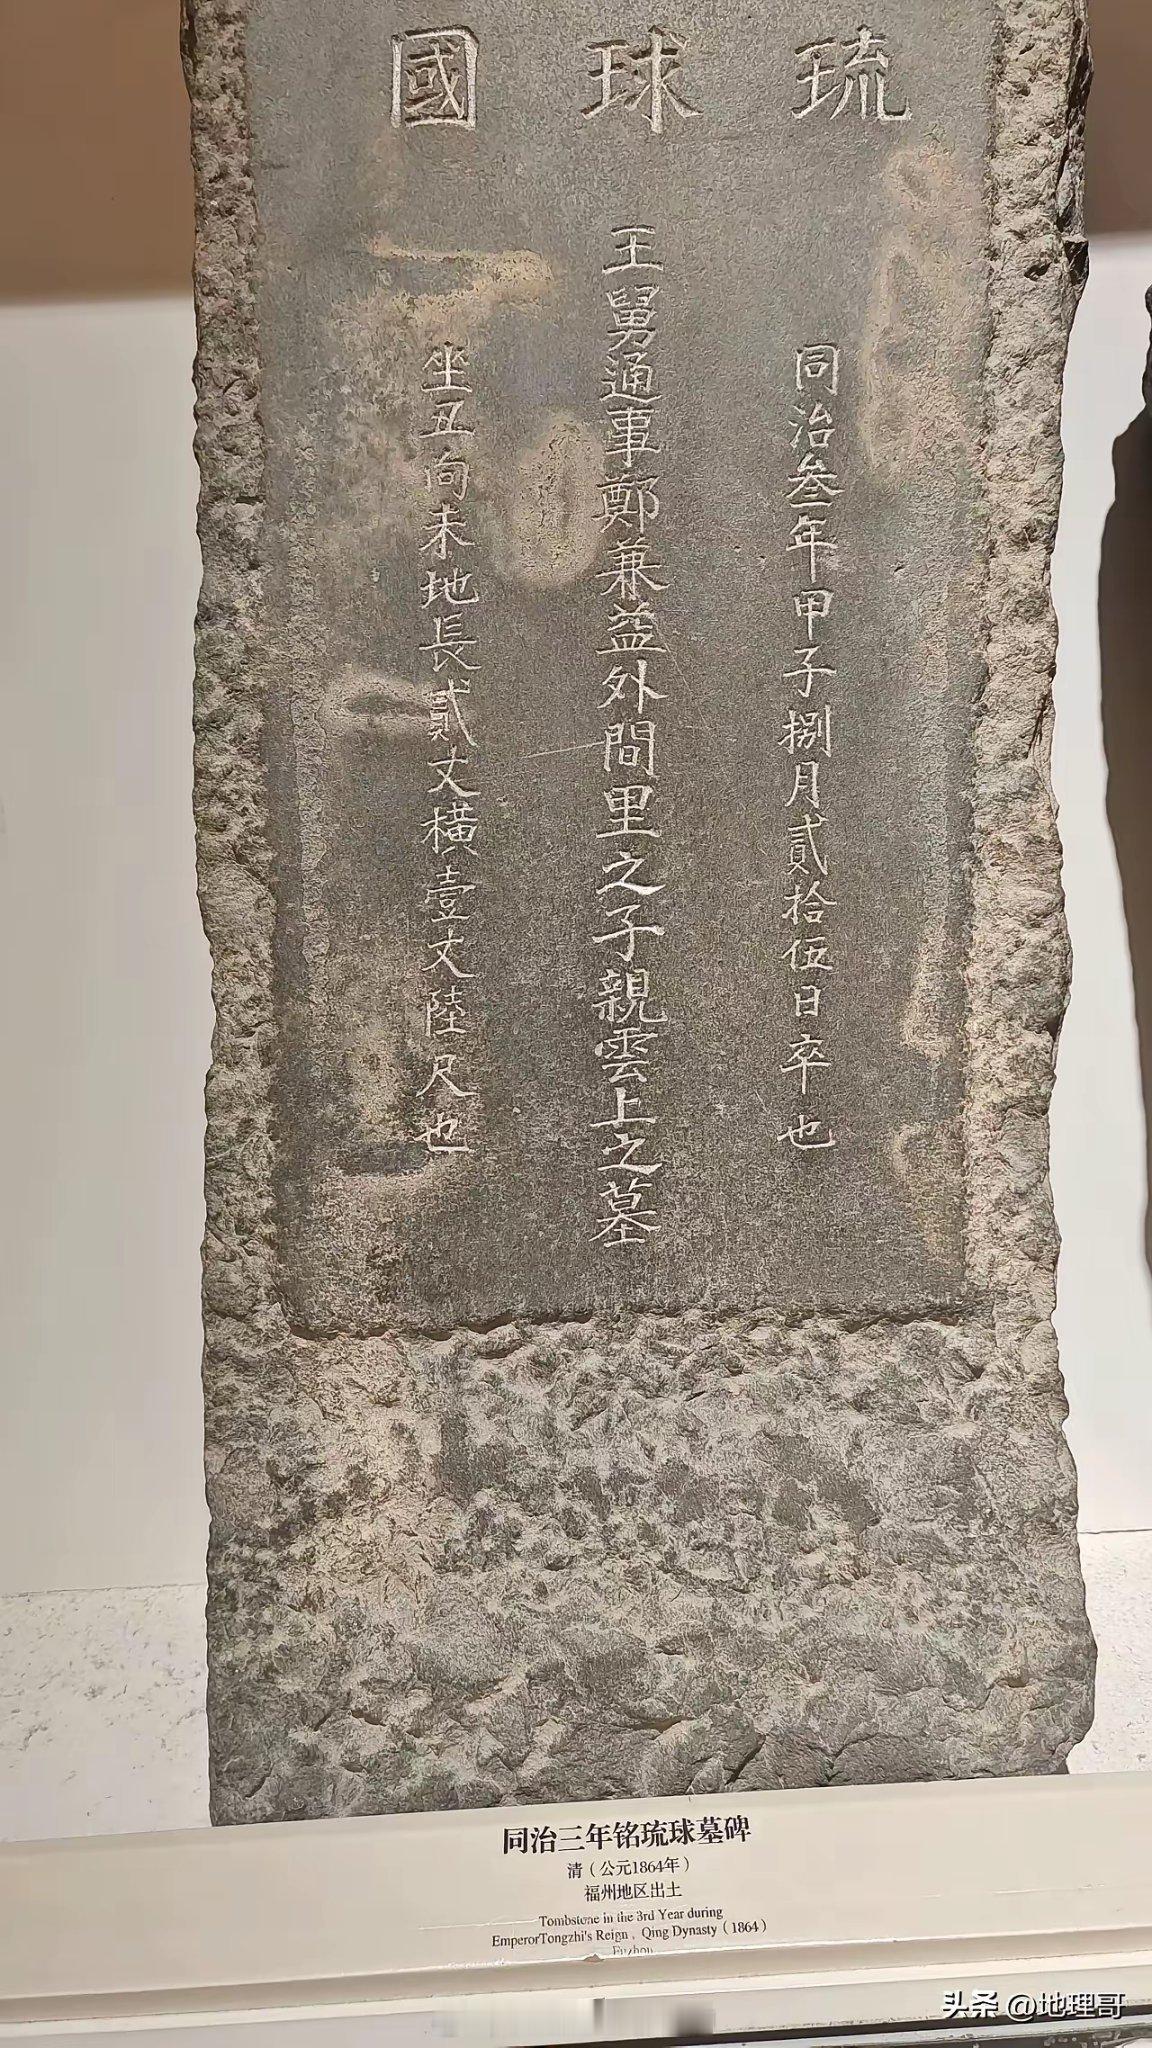 琉球國
同治叄年甲子捌月貳拾伍日卒也
王舅通事鄭兼益外間里之子親雲上之墓
坐丑向未地長貳丈橫壹丈陸尺也
同治三年铭琉球墓碑
清（公元1864年）
福州地区出土
Tombstone in the 3rd Year during
EmperorTongzhi's Reign, Qing Dynasty（1864）
Fuzhou
头条 @地理哥